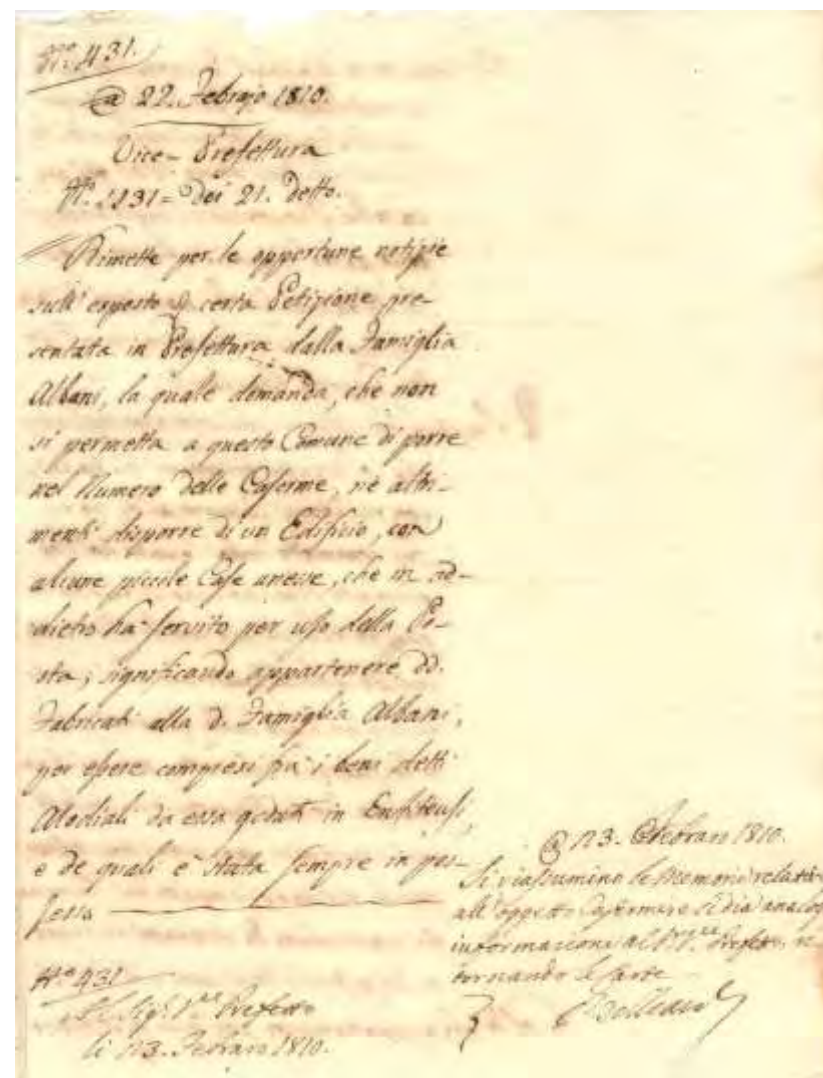 N.º 431.
@ 22. Febrajo 1810.
Vice-Prefettura
N.º 1131= Dei 21. detto.
Rimette per le opportune notizie
sull' esposto di certa Petizione pre-
sentata in Prefettura dalla Famiglia
Albani, la quale domanda, che non
si permetta a questo Comune di porre
nel Numero delle Caserme, nè altri-
menti disporre di un Edificio, con
alcune piccole Case annesse, che in ad-
dietro ha servito per uso della Po-
sta; significando appartenere dd.
Fabricati alla d. Famiglia Albani,
per essere compresi frà i beni detti
Alodiali da essa goduti in Enfiteusi,
e de quali è stata sempre in pos-
sesso
N.º 431
Al Sig.r V.e Prefetto
li 23. Febraro 1810.
@ 23. Febraro 1810.
Si riassumino le Memorie relative
all' oggetto Caserme e si dia analoga
informazione al V.e Prefetto, ri-
tornando le Carte